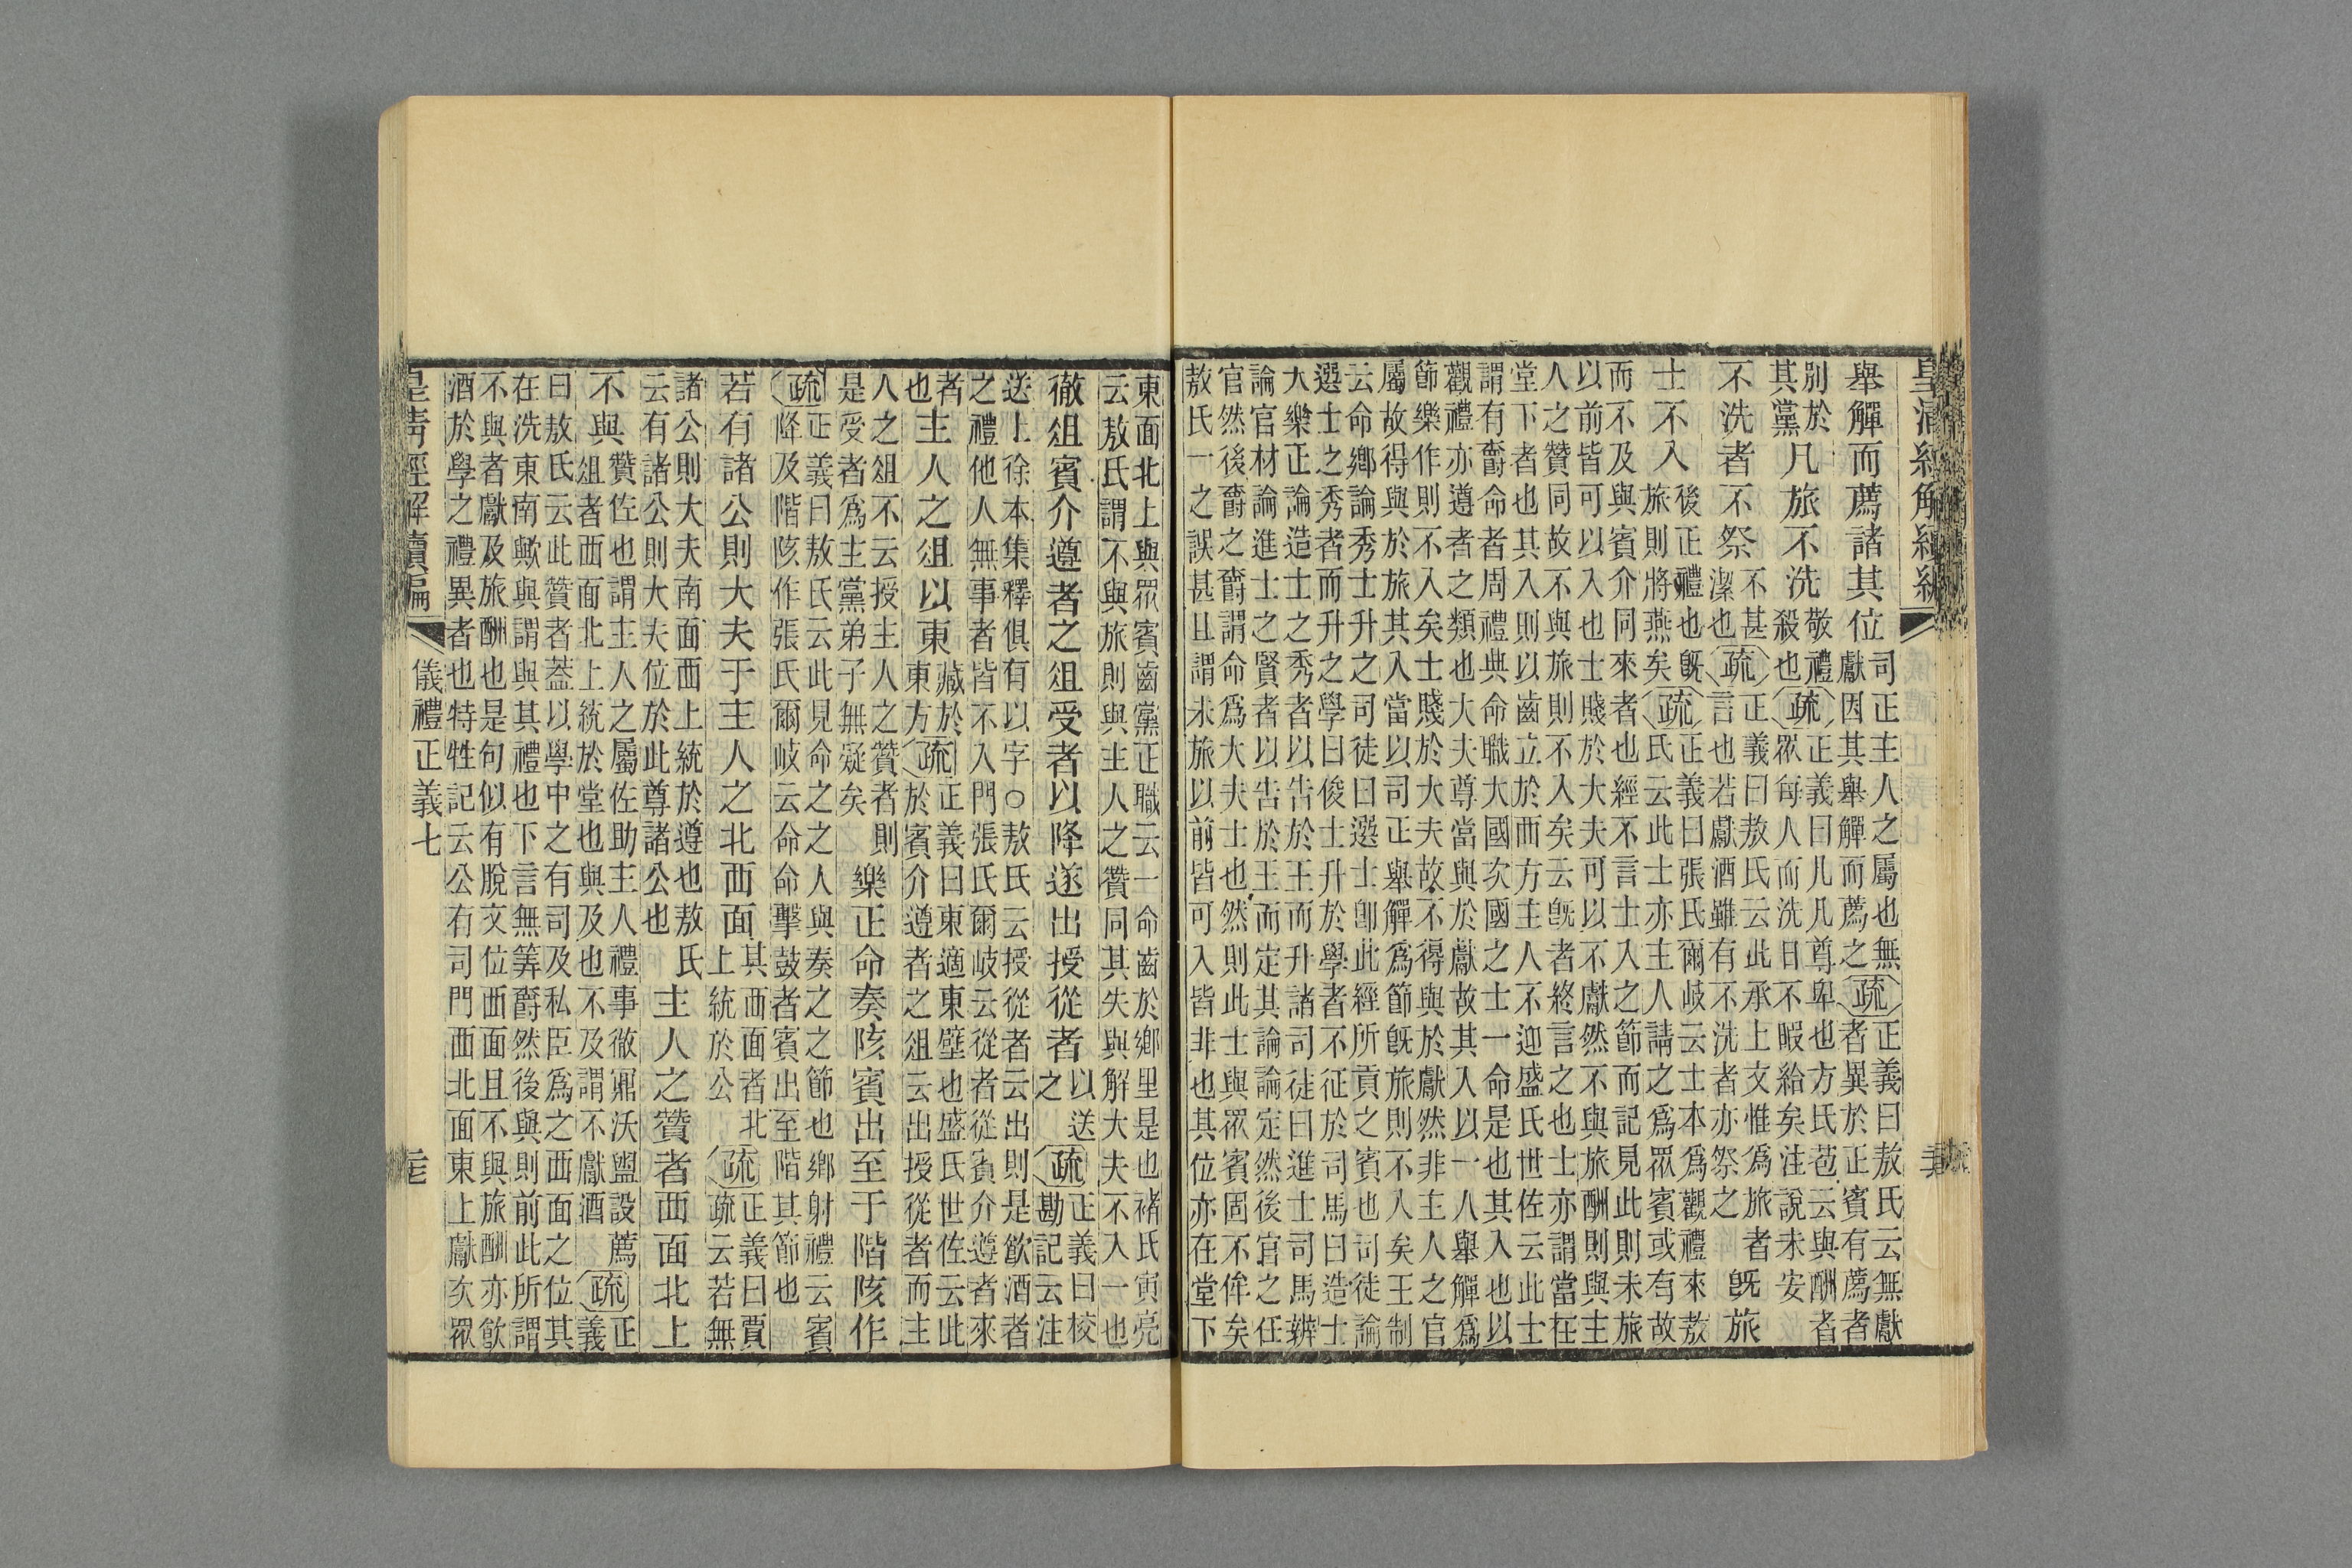 皇清經解續編
舉觶而薦諸其位
司正主人之屬也無
獻因其舉觶而薦之
疏
正義曰敖氏云無獻
者異於正賓有薦者
別於
其黨
凡旅不洗
敬禮
殺也
疏
正義曰凡凡尊卑也方氏苞云與酬者
眾每人而洗日不暇給矣注說未安
不洗者不祭
不甚
潔也
疏
正義曰敖氏云此承上文惟為旅者
言也若獻酒雖有不洗者亦祭之
既旅
士不入
後正禮也既
旅則將燕矣
疏
正義曰張氏爾岐云士本為觀禮來敖
氏云此士亦主人請之為眾賓或有故
而不及與賓介同來者也經不言士入之節而記見此則未旅
以前皆可以入也士賤於大夫可以不獻然不與旅酬則與主
人之贊同故不與旅則不入矣云既者終言之也士亦謂當在
堂下者也其入則以齒立於西方主人不迎盛氏世佐云此士
謂有爵命者周禮典命職大國次國之士一命是也其入也以
觀禮亦遵者之類也大夫尊當與於獻故其入以一人舉觶為
節樂作則不入矣士賤於大夫故不得與於獻然非主人之官
屬故得與於旅其入當以司正舉觶為節既旅則不入矣王制
云命鄉論秀士升之司徒曰選士卽此經所貢之賓也司徒論
選士之秀者而升之學曰俊士升於學者不征於司馬曰造士
大樂正論造士之秀者以告於王而升諸司徒曰進士司馬辨
論官材論進士之賢者以告於王而定其論論定然後官之任
官然後爵之爵謂命為大夫士也然則此士與眾賓固不侔矣
敖氏一之誤甚且謂未旅以前皆可入皆非也其位亦在堂下
東面北上與眾賓齒黨正職云一命齒於鄉里是也褚氏寅亮
云敖氏謂不與旅則與主人之贊同其失與解大夫不入一也
徹俎賓介遵者之俎受者以降遂出授從者
以送
之
疏
正義曰校
勘記云注
送上徐本集釋俱有以字○敖氏云授從者云出則是飲酒者
之禮他人無事者皆不入門張氏爾岐云從者從賓介遵者來
者
也
主人之俎以東
藏於
東方
疏
正義曰東適東壁也盛氏世佐云此
於賓介遵者之俎云出授從者而主
人之俎不云授主人之贊者則
是受者為主黨弟子無疑矣
樂正命奏陔賓出至于階陔作
疏
正義曰敖氏云此見命之之人與奏之之節也鄉射禮云賓
降及階陔作張氏爾岐云命命擊鼓者賓出至階其節也
若有諸公則大夫于主人之北西面
其西面者北
上統於公
疏
正義曰賈
疏云若無
諸公則大夫南面西上統於遵也敖氏
云有諸公則大夫位於此尊諸公也
主人之贊者西面北上
不與
贊佐也謂主人之屬佐助主人禮事徹鼏沃盥設薦
俎者西面北上統於堂也與及也不及謂不獻酒
疏
正
義
曰敖氏云此贊者蓋以學中之有司及私臣為之西面之位其
在洗東南歟與謂與其禮也下言無筭爵然後與則前此所謂
不與者獻及旅酬也是句似有脫文位西面且不與旅酬亦飲
酒於學之禮異者也特牲記云公有司門西北面東上獻次眾
皇清經解續編
儀禮正義七